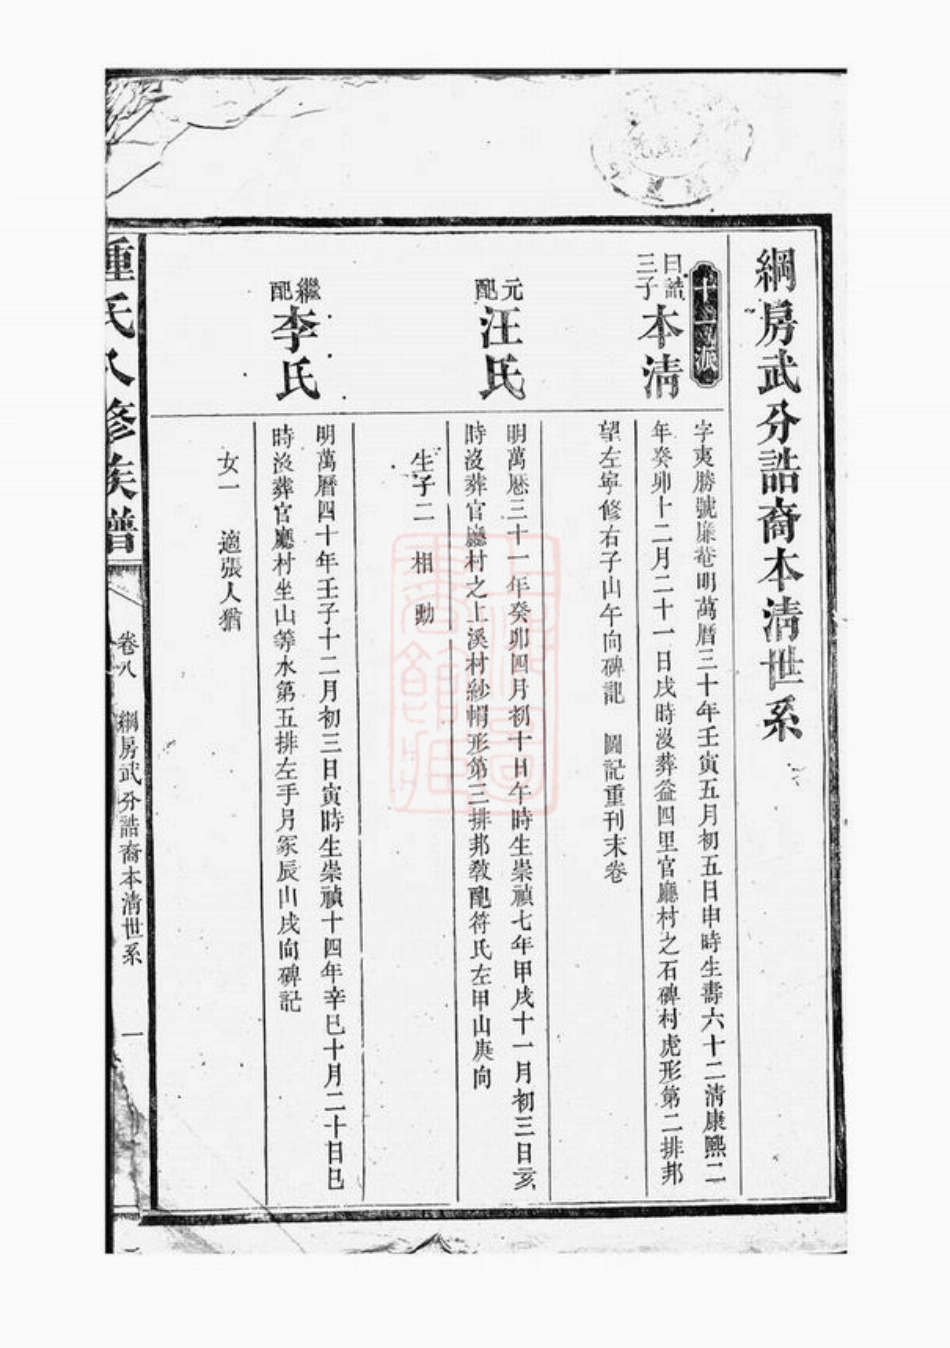 綱房武分誥裔本淸世系
十一派
曰誥
三子
本淸
字夷勝號廉菴明萬曆三十年壬寅五月初五日申時生壽六十二淸康熙二
年癸卯十二月二十一日戌時沒葬益四里官廳村之石碑村虎形第二排邦
望左寧修右子山午向碑記 圖記重刊末卷
元
配
汪氏
明萬曆三十一年癸卯四月初十日午時生崇禎七年甲戌十一月初三日亥
時沒葬官廳村之上溪村紗帽形第三排邦敎配符氏左甲山庚向
生子二 相 勳
繼
配
李氏
明萬曆四十年壬子十二月初三日寅時生崇禎十四年辛巳十月二十日巳
時沒葬官廳村坐山等水第五排左手另冢辰山戌向碑記
女一 適張人猶
氏八修族譜
卷八
綱房武分誥裔本淸世系
一